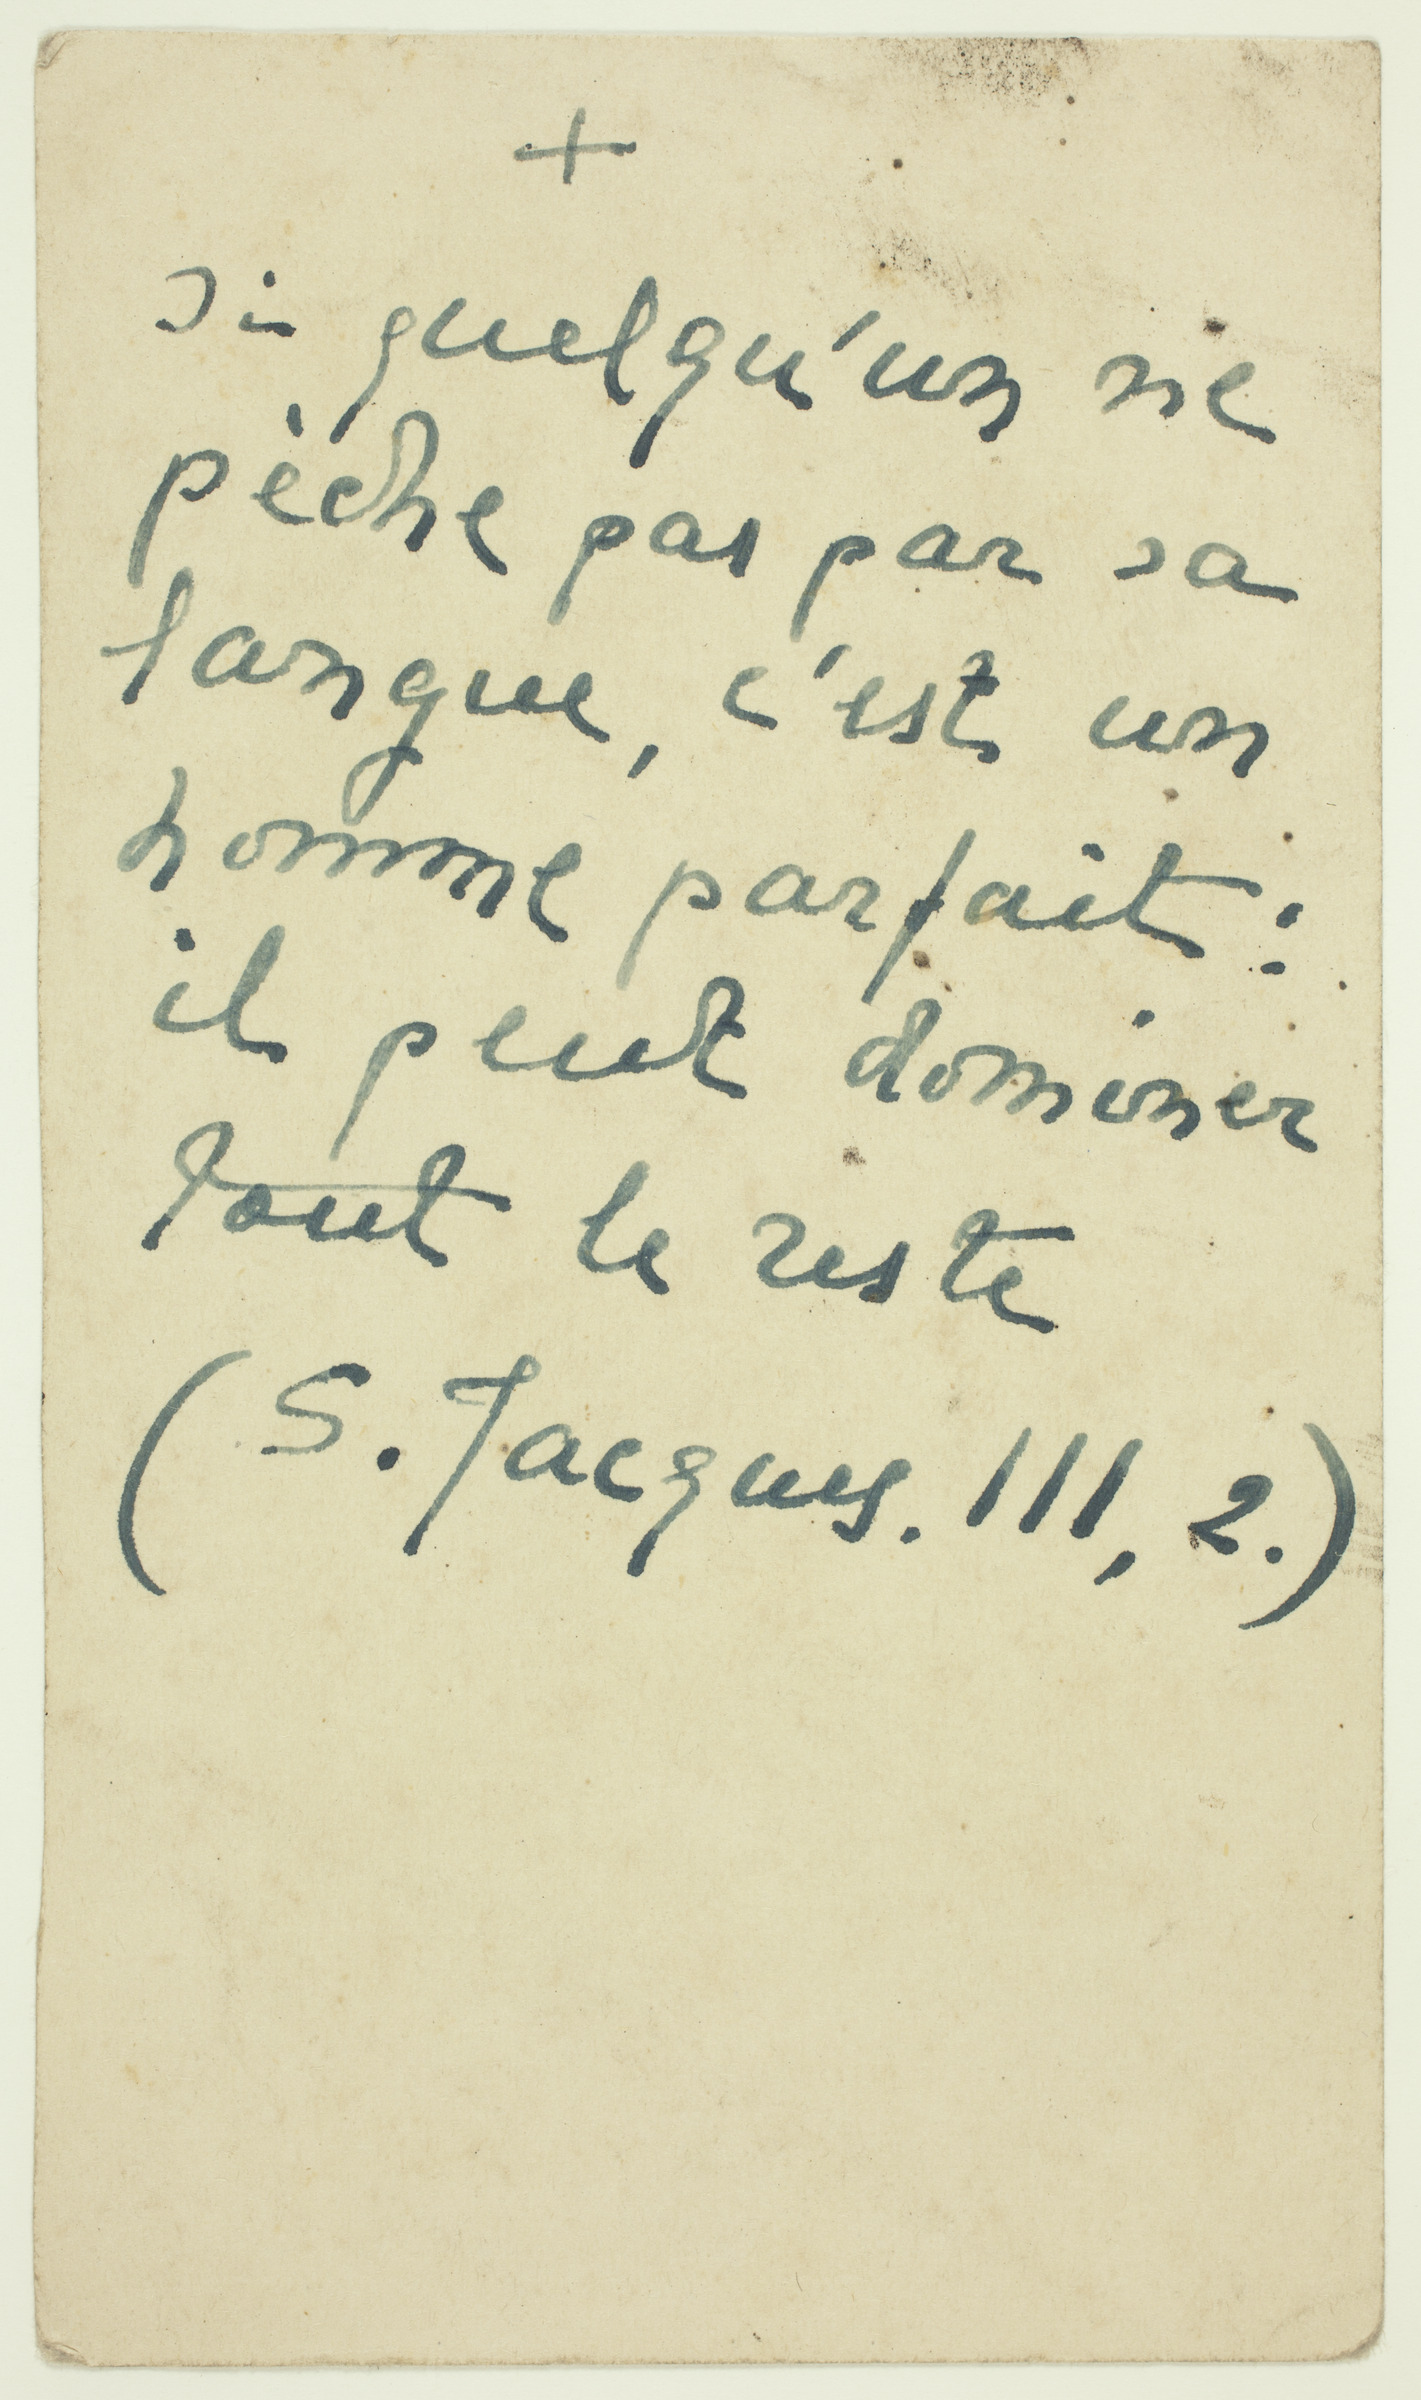 +
si quelqu'un ne
pèche pas par sa
langue, c'est un
homme parfait :
il peut dominer
tout le reste
(S. Jacques. III, 2.)